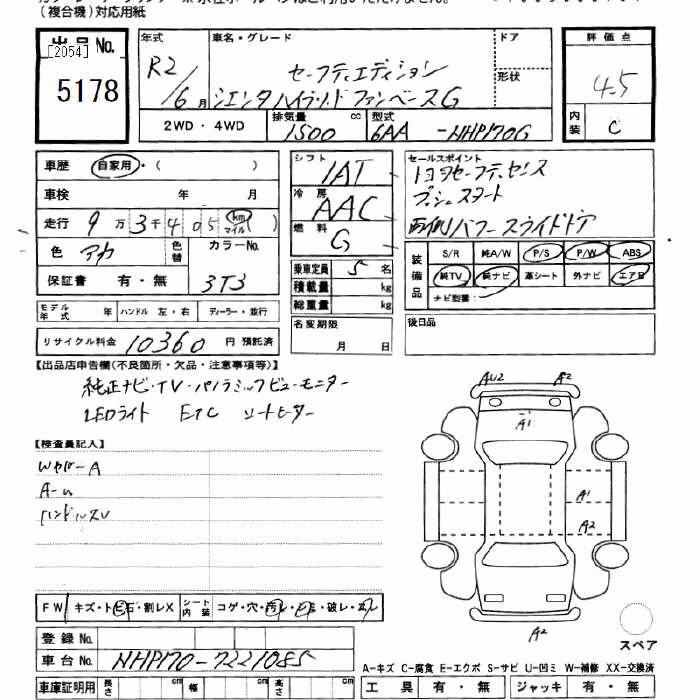 (複合機)対応用紙
出品No.
[2054]
5178
年式 車名・グレード ドア
R2/6月 セーフティエディション 形状
シエンタハイブリッド ファンベースG
2WD・4WD 排気量 cc 型式
1500 6AA -NHP170G
評価点
4.5
内装 C
車歴 自家用・( )
車検 年 月
走行 9万3千405 km マイル( )
色 アカ 色替 カラーNo.
保証書 有・無 3T3
シフト IAT
冷房 AAC
燃料 G
乗車定員 5名
積載量 kg
総重量 kg
名変期限
月 日
セールスポイント
トヨタセーフティセンス
プッシュスタート
両側パワースライドドア
装備品 S/R 純A/W P/S P/W ABS
純TV 純ナビ 革シート 外ナビ エアB
ナビ型番:
後日品
モデル年式 年 ハンドル 左・右 ディーラー・並行
リサイクル料金 10360円 預託済
【出品店申告欄(不良箇所・欠品・注意事項等)】
純正ナビ・TV・パノラミックビューモニター
LEDライト ETC シートヒーター
【検査員記入】
A-ム
ハンドルスレ
AU2 A2
A1
A1
A2
A2
スペア
FW キズ・トビ石・割レX シート内装 コゲ・穴・汚レ・シミ・破レ・スレ
登録No.
車台No. NHP170-7221085
車庫証明用 長さ cm 幅 cm 高さ cm
A-キズ C-腐食 E-エクボ S-サビ U-凹ミ W-補修 XX-交換済
工具 有・無 ジャッキ 有・無